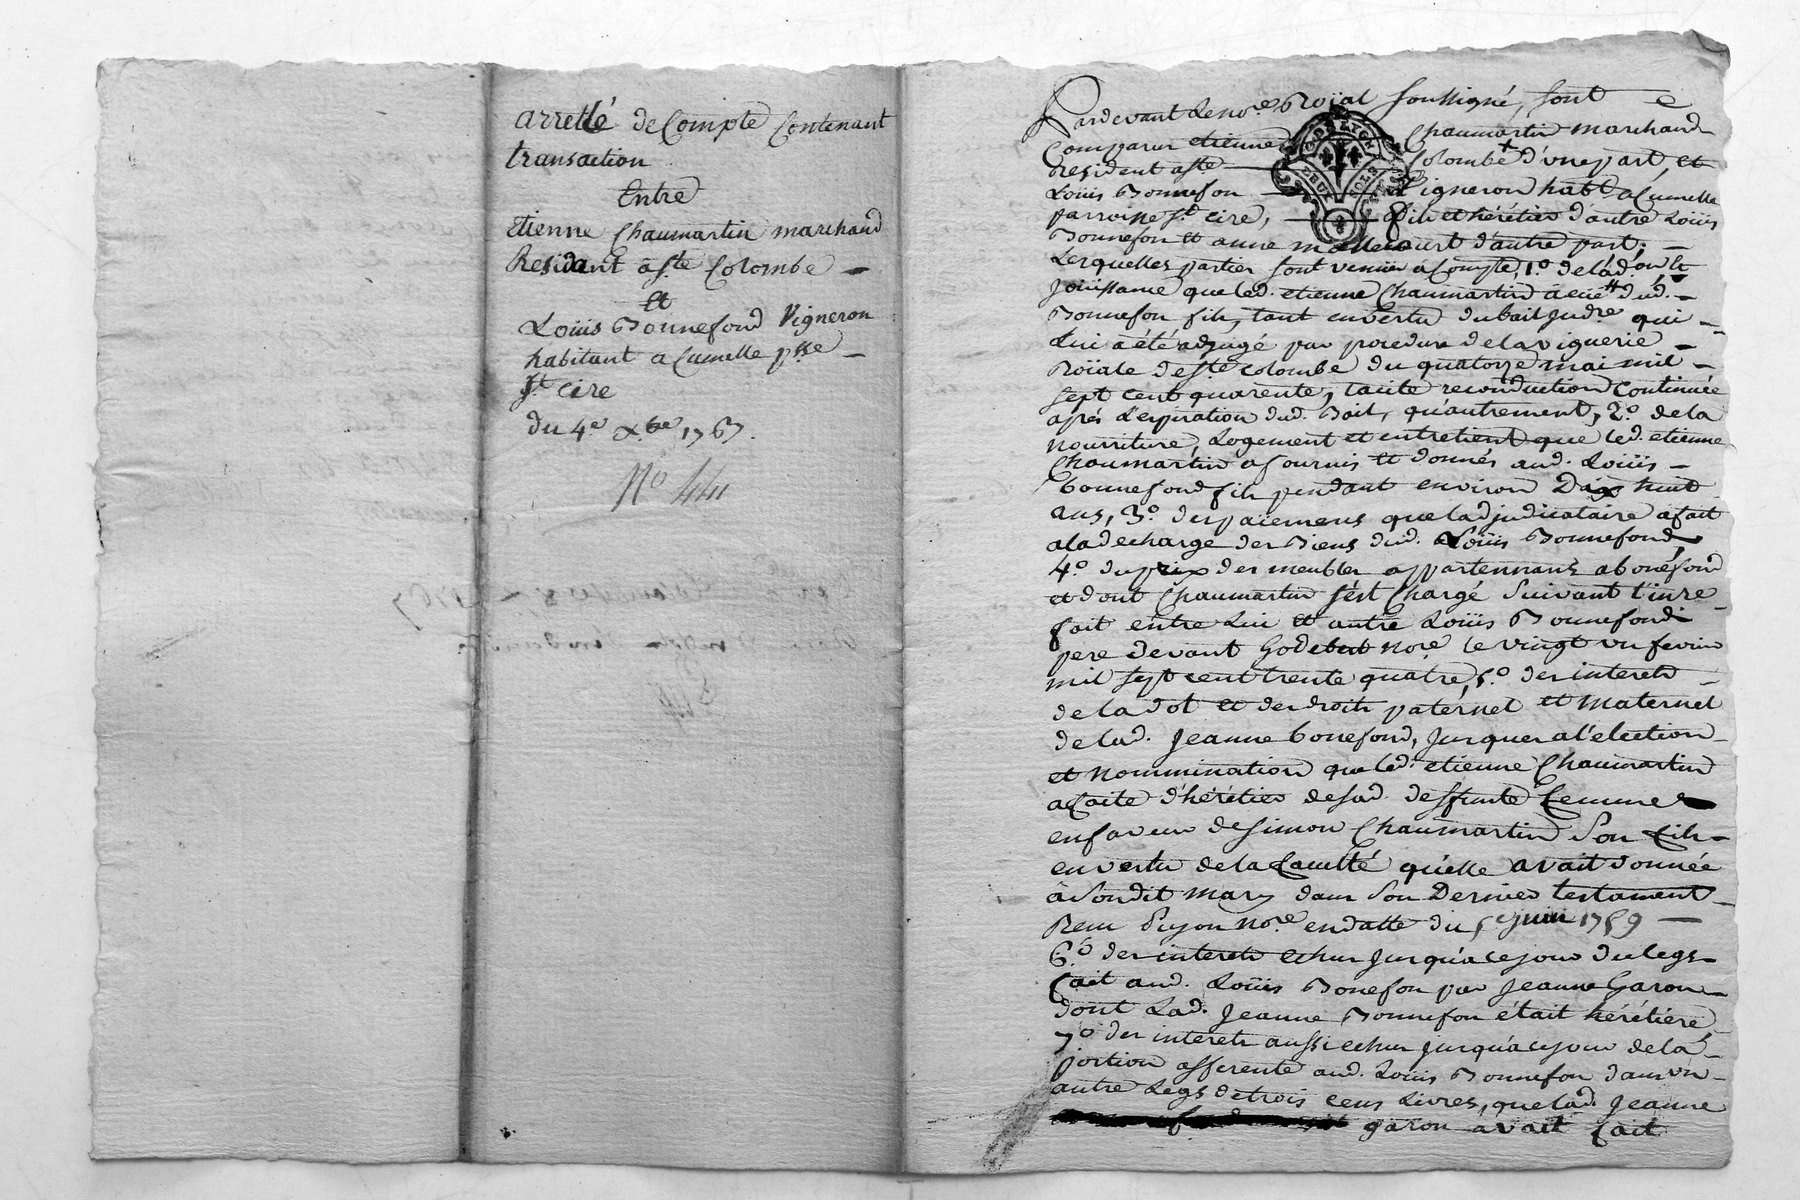 arretté de Compte Contenant
transaction
Entre
etienne Chaumartin marchand
Residant a ste Colombe
et
Loüis Bonnefond Vigneron
habitant a Cumelle psse
st cire
du 4e xbre 1767.
No 44
Pardevant le nore. Roïal soussigné, sont
Comparus etienne Chaumartin marchand
Resident a ste Colombe d'une part, et
Loüis Bonnefon Vigneron habt a Cumelle
parroisse st. cire, fils et héritier d'autre Loüis
Bonnefon et anne d'autre part;
Lesquelles parties sont venües a Compte, 1o. de la
joüissance que led. etienne Chaumartin a eüe dud.
Bonnefon fils, tant en vertu du bail judre. qui
Lui a été adjugé par procedure de la viguerie
Roïale de ste Colombe du quatorze mai mil
sept cent quarente, tacite reconduction Continuée
aprés L'expiration dud. Bail, qu'autrement, 2o. de la
nourriture, Logement et entretient que led. etienne
Chaumartin a fournis et donnés aud. Loüis
bonnefond fils pendant environ Dix huit
ans, 3o. des païemens que l'adjudicataire a fait
a la decharge des Biens dud. Loüis Bonnefond,
4o. du prix des meubles appartennans a bonéfond
et dont Chaumartin s'est Chargé Suivant l'invre
fait entre Lui et autre Loüis Bonnefond
pere devant nore le vingt un fevrier
mil sept cent trente quatre, 5o. des interets
de la dot et des droits paternel et maternel
de lad. Jeanne bonefond, jusques a l'election
et nommination que led. etienne Chaumartin
a faite d'héritier de sad. deffunte femme
en faveur de simon Chaumartin Son fils
en vertu de la faculté qu'elle avait donnée
à Son dit mary dans Son Dernier testament
Reçu Nore. en datte du 5e juin 1759
6o. des interets echus jusqu'a ce jour du legs
fait aud. Loüis Bonefon par Jeanne Garon
dont Lad. Jeanne Bonnefon était héritiére,
7o des interets aussi echus jusqu'a ce jour de la
portion afferente aud. Loüis Bonnefon dans un
autre Legs de trois cens Livres, que lad. Jeanne
garon avait fait